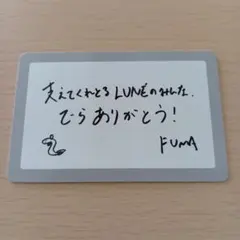 支えてくれとるLUNÉのみんな、
でらありがとう!
FUMA